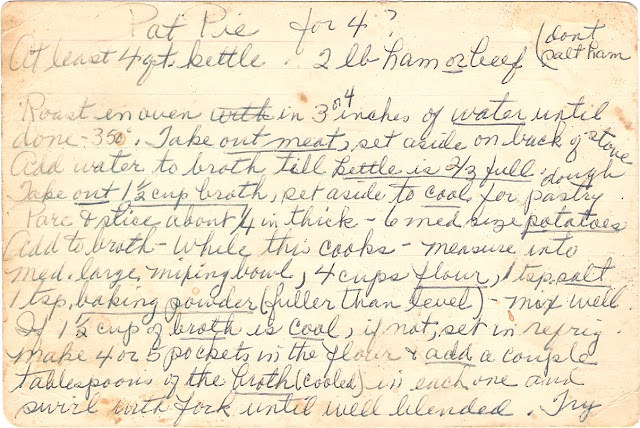 Pat Pie for 4?
At least 4 qt. kettle. 2 lb ham or beef (dont salt ham
Roast in oven with in 3 or 4 inches of water until
done - 350°. Take out meat, set aside on back of stove
Add water to broth till kettle is 2/3 full.
Take out 1 1/2 cup broth, set aside to cool for dough pastry.
Pare & slice about 1/4 in thick - 6 med size potatoes
Add to broth - While this cooks - measure into
med. large mixing bowl, 4 cups flour, 1 tsp. salt
1 tsp. baking powder (fuller than level) - mix well.
If 1 1/2 cup of broth is cool, if not, set in refrig.
make 4 or 5 pockets in the flour & add a couple
tablespoons of the broth (cooled) in each one and
swirl with fork until well blended. Try